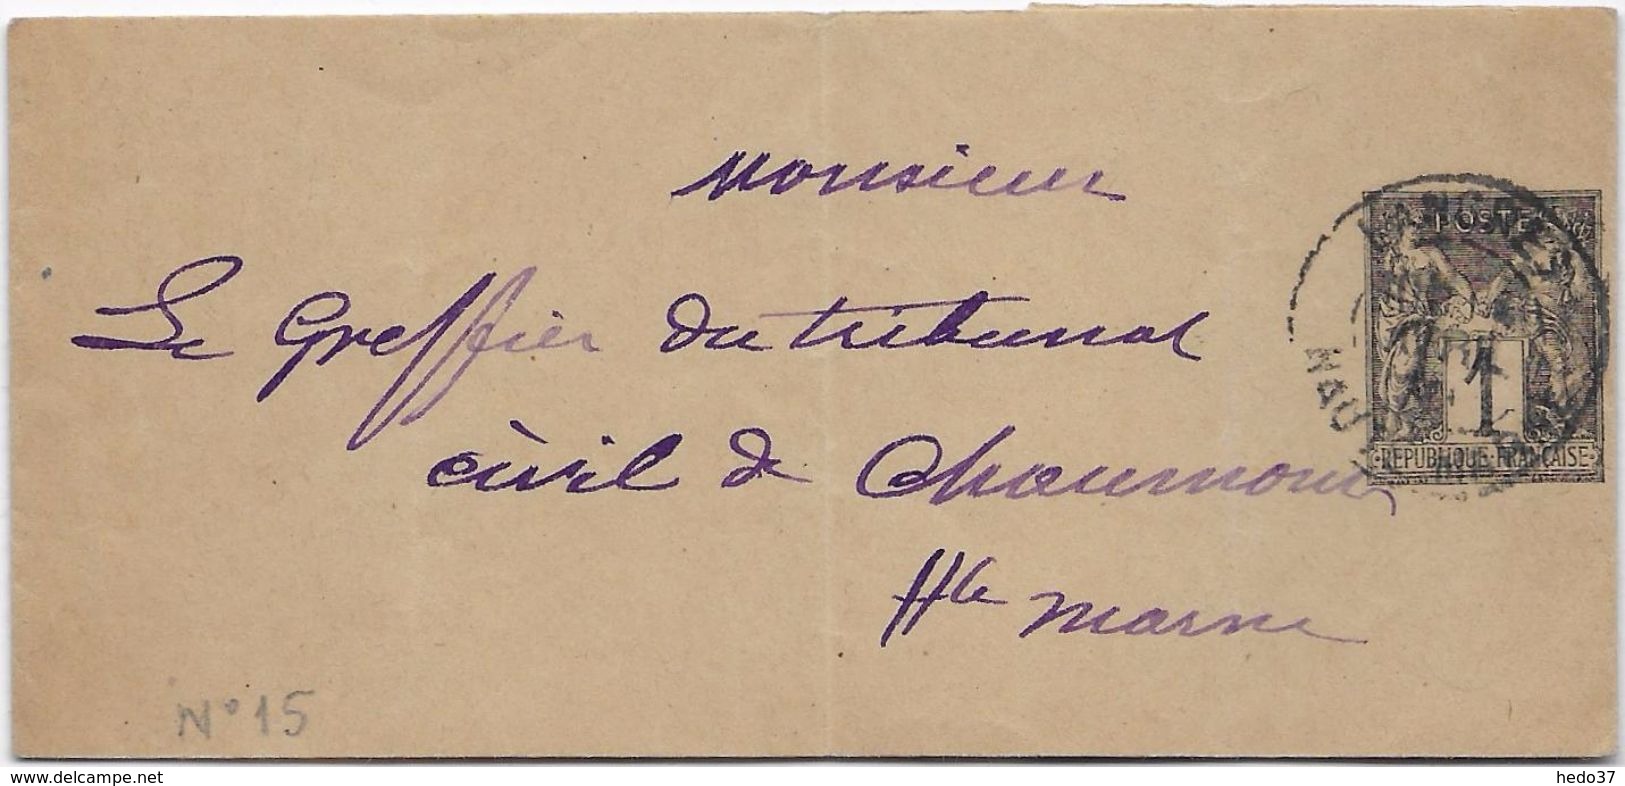 Monsieur
Le Greffier du tribunal
civil de Chaumont
Hte Marne
N° 15
POSTES
1
REPUBLIQUE FRANCAISE
LANGRES
HAU
www.delcampe.net
hedo37